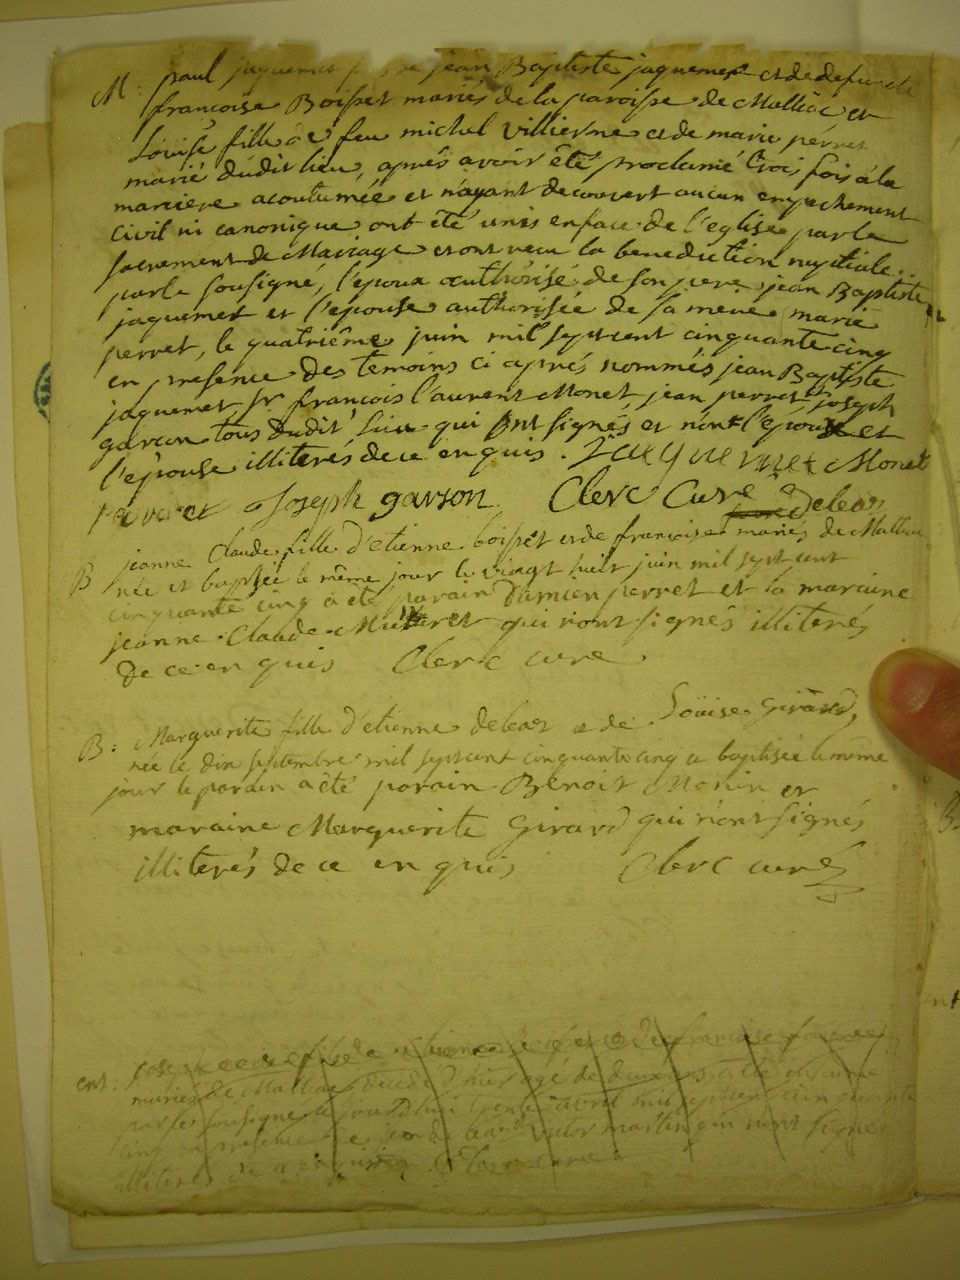 M: paul jaquemet jean Baptiste jaquemet et de defuncte
françoise Boisset mariés de la paroisse de Malliac et
Loüise fille de feu michel villierme et de marie perret
marié dudit lieu, aprés avoir été proclamé trois fois à la
maniere acoutumée et n'ayant decouvert aucun empechement
civil ni canonique ont été unis en face de l'eglise par le
sacrement de Mariage et ont recu la benediction nuptiale
par le sousigné, l'epoux authorisé de son pere jean Baptiste
jaquemet et l'epouse authorisée de sa mere marie
perret, le quatriême juin mil sept cent cinquante cinq
en presence des temoins ci aprés nommés jean Baptiste
jaquemet, sr francois Laurent Monet jean perret et joseph
garson tous dudit lieu qui ont signés et non l'époux et
l'épouse illiterés de ce enquis. Jacquemet Monet
perret Joseph garson Clerc Curé
B jeanne Claude fille d'etienne boisset et de françoise mariés de Malliac
née et baptisée le même jour le vingt huit juin mil sept cent
cinquante cinq à été parain Damien perret et la maraine
jeanne Claude qui n'ont signés illiterés
de ce enquis Clerc curé
B: Marguerite fille d'etienne deleaz et de Loüise Girard,
née le dix septembre mil sept cent cinquante cinq a baptisée le même
jour le parain a été parain Benoit Monin et
maraine Marguerite Girard qui n'ont signés
illiterés de ce enquis Clerc curé
ent: fils de françoise
mariés de Malliac decedé hier agé de a été
par le sousigné le jourd'hui trente avril mil sept cent cinquante
cinq en presence de martin qui n'ont signés
illiterés de ce enquis Clerc curé